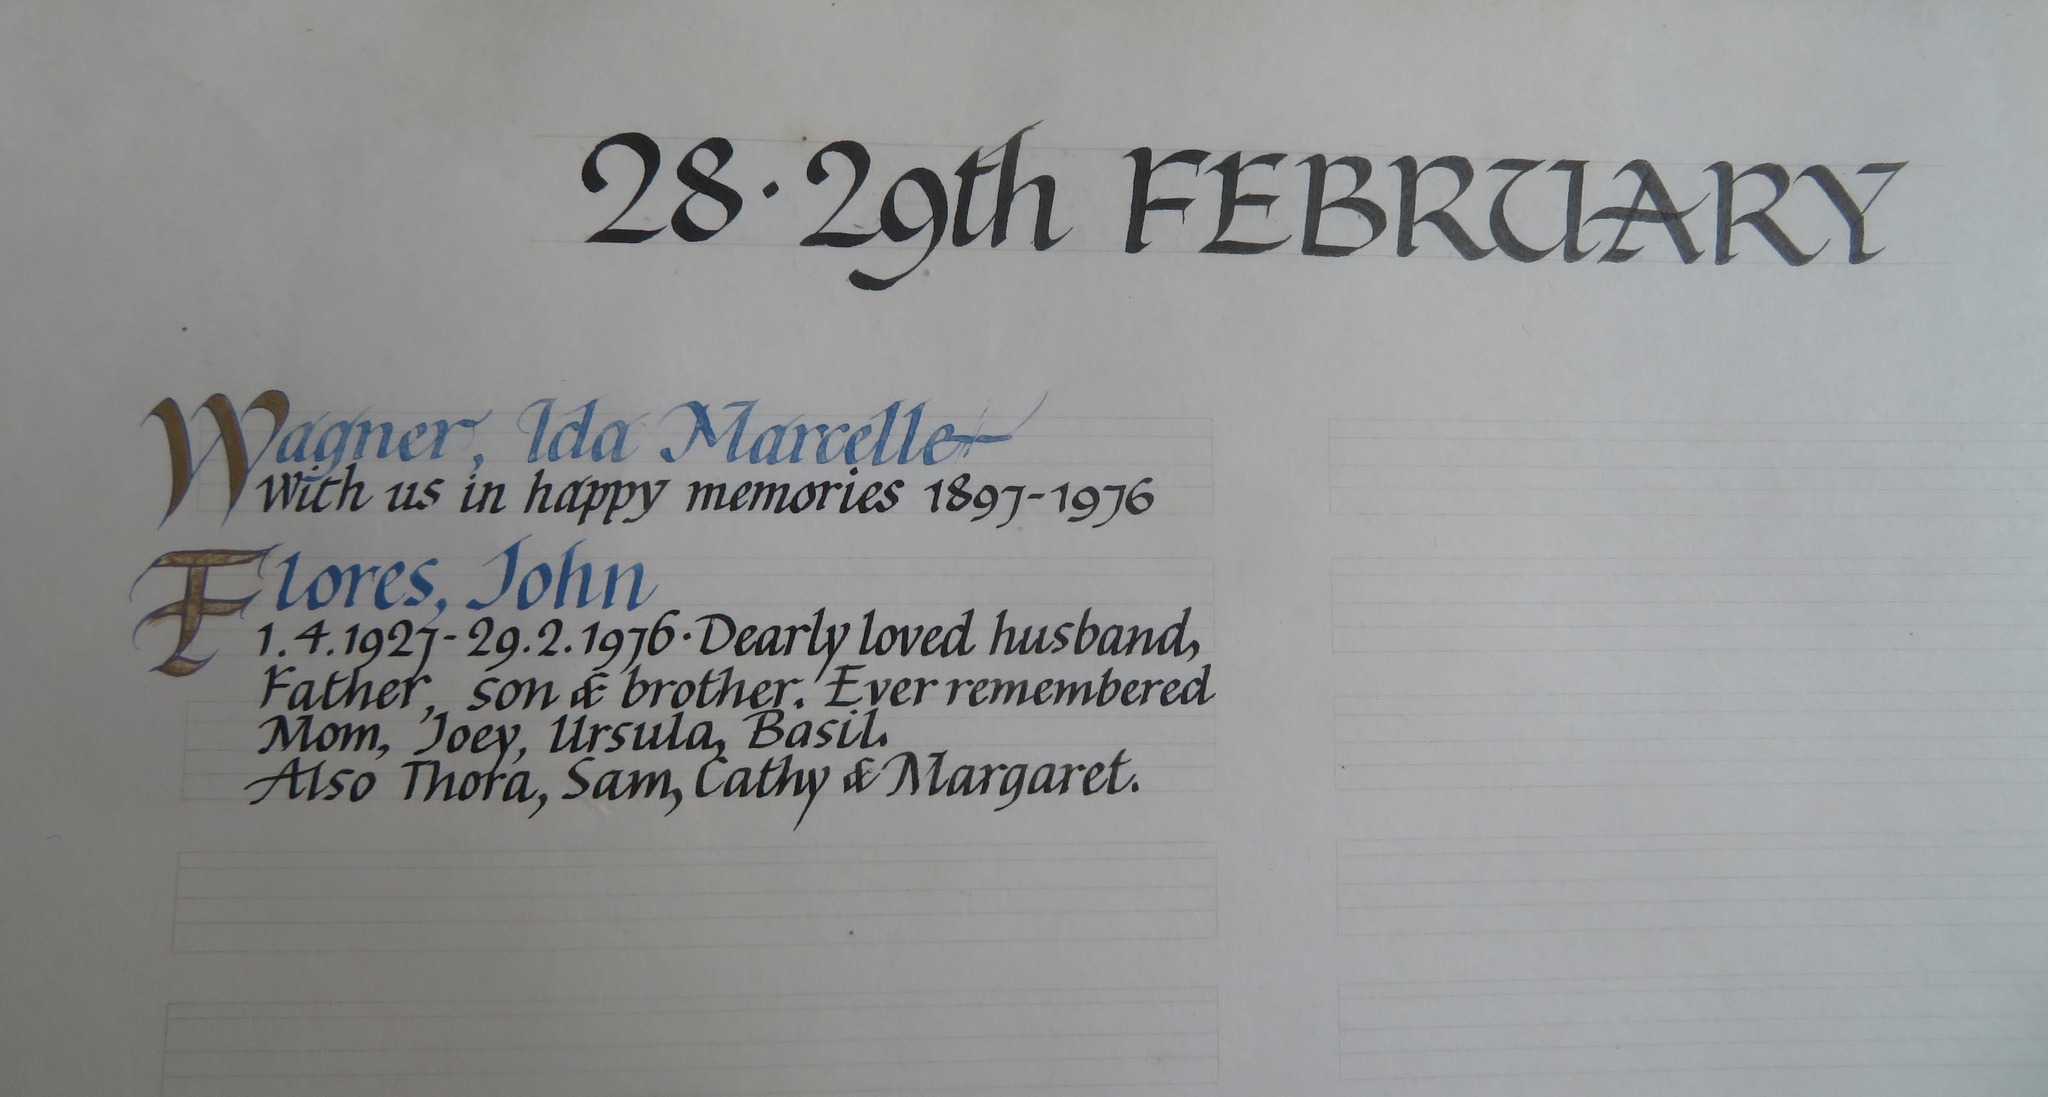 28·29th FEBRUARY
Wagner, Ida Marcelle
With us in happy memories 1897-1976
Flores, John
1.4.1927-29.2.1976·Dearly loved husband,
Father, son & brother. Ever remembered
Mom, Joey, Ursula, Basil.
Also Thora, Sam, Cathy & Margaret.